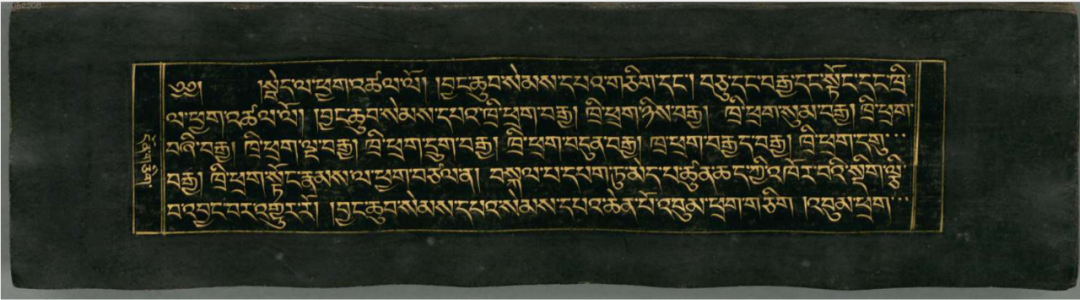 ༄༅། །སྟེང་ལ་ཕྱག་འཚལ་ལོ། །བྱང་ཆུབ་སེམས་དཔའ་གཅིག་དང༌། བཅུ་དང་བརྒྱ་དང་སྟོང་དང་ཁྲི་
ལ་ཕྱག་འཚལ་ལོ། །བྱང་ཆུབ་སེམས་དཔའ་ཁྲི་ཕྲག་བརྒྱ། ཁྲི་ཕྲག་ཉིས་བརྒྱ། ཁྲི་ཕྲག་སུམ་བརྒྱ། ཁྲི་ཕྲག་
བཞི་བརྒྱ། ཁྲི་ཕྲག་ལྔ་བརྒྱ། ཁྲི་ཕྲག་དྲུག་བརྒྱ། ཁྲི་ཕྲག་བདུན་བརྒྱ། ཁྲི་ཕྲག་བརྒྱད་བརྒྱ། ཁྲི་ཕྲག་དགུ་
བརྒྱ། ཁྲི་ཕྲག་སྟོང་རྣམས་ལ་ཕྱག་བཙལ་ན། བསྐལ་པ་དཔག་ཏུ་མེད་པ་ཚུན་ཆད་ཀྱི་འཁོར་བའི་སྡིག་ལྕི་
བ་འབྱང་བར་འགྱུར་རོ། །བྱང་ཆུབ་སེམས་དཔའ་སེམས་དཔའ་ཆེན་པོ་འབུམ་ཕྲག་གཅིག །འབུམ་ཕྲག་